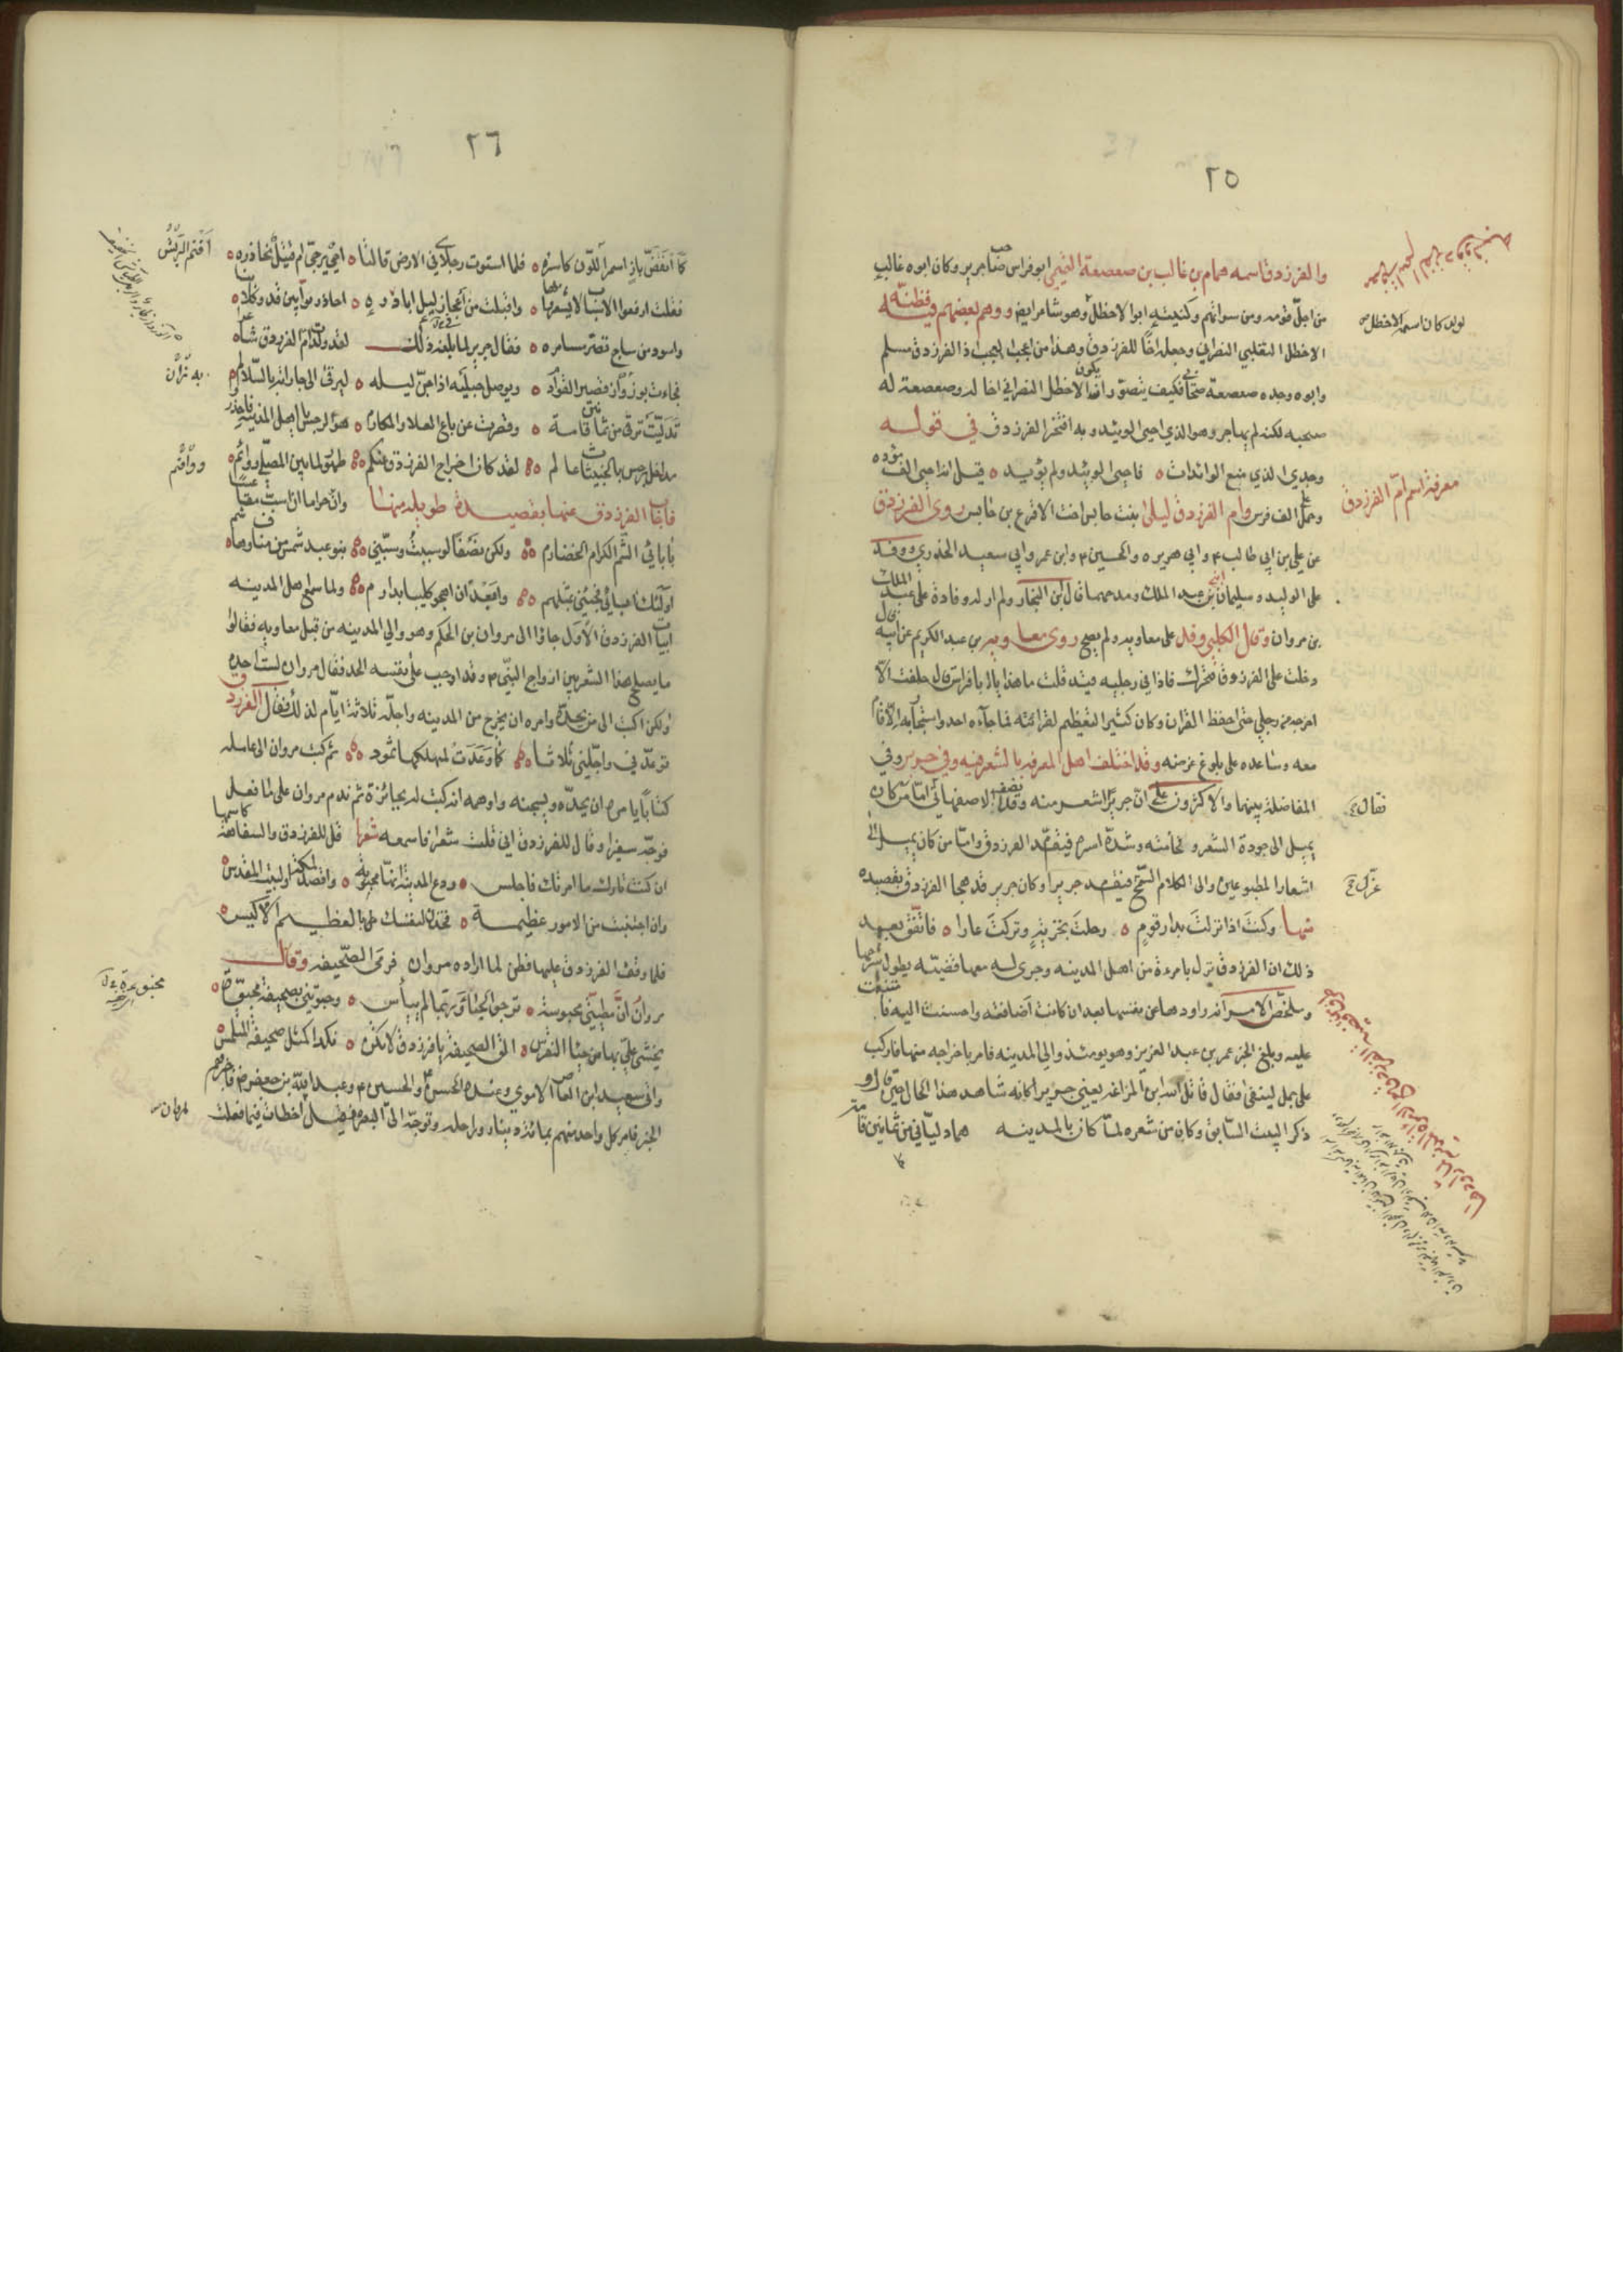 ٢٥
والفرزدق اسمه همام بن غالب بن صعصعة التميمي ابو فراس صاحب جرير وكان ابوه غالب
من اجلّ قومه ومن سراتهم وكنيته ابو الاخطل وهو شاعر ايضا ووهم بعضهم فيه فظنّه
الاخطل التغلبي النصراني وجعله اخا للفرزدق وهذا من اعجب العجب اذ الفرزدق مسلم
وابوه وجده صعصعة صحابي فكيف يتصوّر ان يكون الاخطل النصراني اخا له وصعصعة له
صحبه لكنه لم يهاجر وهو الذي احيى الوئيد وبه افتخر الفرزدق في قوله
وجدي الذي منع الوائدات ٥ فاحيى الوئيد ولم يؤيد ٥ قيل انه احيى الف مؤده
وحمل على الف فرس وام الفرزدق ليلى بنت حابس اخت الاقرع بن حابس روى الفرزدق
عن علي بن ابي طالب وابي هريره والحسين وابن عمر وابي سعيد الخدري ووفد
على الوليد وسليمان ابني عبد الملك ومدحهما قال ابن النجار ولم ار له وفادة على عبد الملك
بن مروان وقال الكلبي وفد على معاويه ولم يصح روى معاويه بن عبد الكريم عن ابيه قال
دخلت على الفرزدق فتحرك فاذا في رجليه قيد قلت ما هذا يا ابا فراس قال حلفت الّا
اخرجه من رجلي حتى احفظ القران وكان كثير التعظيم لقرابته فما جاءه احد واستجار به الّا قام
معه وساعده على بلوغ غرضه وقد اختلف اهل المعرفه بالشعر فيه وفي جرير وفي
المفاضلة بينهما والاكثرون على ان جريرا اشعر منه وقد انصف الاصفهاني امّا من كان
يميل الى جودة الشعر وفخامته وشدّة اسره فيقدّم الفرزدق وامّا من كان يميل الى
اشعار المطبوعين والى الكلام السمح فيقدم جريرا وكان جرير قد هجا الفرزدق بقصيده
منها وكنت اذا نزلت بدار قوم ٥ رحلت بخزية وتركت عارا ٥ فاتّفق بعد
ذلك ان الفرزدق نزل بامرءة من اهل المدينه وجرى له معها قضيّه يطول شرحها
وملخّص الامر انه راودها عن نفسها بعد ان كانت أضافته واحسنت اليه فامتنعت
عليه وبلغ الخبر عمر بن عبد العزيز وهو يومئذ والي المدينه فامر باخراجه منها فاركب
على جمل لينفى فقال قاتل الله ابن المراغه يعني جريرا كانه شاهد هذا الحال حتى قال و
ذكر البيت السّابق وكان من شعره لمّا كان بالمدينه هما دليّاني من ثمانين قامة
معرفة اسم امّ الفرزدق
فقال
٢٦
كما انقضّ باز اسمر اللون كاسره ٥ فلما استوت رجلاي في الارض قالتا ٥ احيّ يرجّى ام قتيل نحاذره ٥
فقلت ارفعوا الاسباب لا يشعروا بنا ٥ واقبلت من اعجاز ليل ابادره ٥ احاذر بوّابين قد وكلا بنا ٥
واسود من ساج تصر مسامره ٥ فقال جرير لما بلغه ذلك لقد ولدت ام الفرزدق شاعرا
فجاءت بوزواز قصير القوائم ٥ ويوصل حبليه اذا جنّ ليله ٥ ليرقى الى جاراته بالسّلالم ٥
تدليت ترقى من ثمانين قامة ٥ وقصرت عن باع العلا والمكارم ٥ هو الرجس يا اهل المدينه فاحذروا
مداخل رجس بالخبيثات عالم ٥ لقد كان اخراج الفرزدق عنكم ٥ طهورا لما بين المصلى وواقم ٥
فاجاب الفرزدق عنها بقصيدة طويله منها وان حراما ان اسب مقاعسا
بآبائي الشّم الكرام الخضارم ٥ ولكن نصفا لو سببت وسبّني ٥ بنو عبد شمس من مناف وهاشم
اولئك آبائي فجئني بمثلهم ٥ واعبد ان اهجو كليبا بدارم ٥ ولما سمع اهل المدينه
ابيات الفرزدق الاول جاؤا الى مروان بن الحكم وهو والي المدينه من قبل معاويه فقالوا
ما يصلح هذا الشعر بين ازواج النبيّ وقد اوجب على نفسه الحد فقال مروان لست احده
ولكن اكتب الى من يحدّه وامره ان يخرج من المدينه واجلّه ثلاثة ايّام لذلك فقال الفرزدق
توعدني واجّلني ثلاثا ٥ كما وعدت لمهلكها ثمود ٥ ثم كتب مروان الى عامله
كتابا يامره ان يحدّه ويسجنه واوهمه انه كتب له بجائزة ثم ندم مروان على ما فعل
فوجّه سفيرا وقال للفرزدق اني قلت شعرا فاسمعه شعرا قل للفرزدق والسفاهة كاسمها
ان كنت تارك ما امرتك فاجلس ٥ ودع المدينة انها محبوبة ٥ واقصد لمكة او لبيت المقدس ٥
وان اجتنبت من الامور عظيمة ٥ فخذن لنفسك بالعظيم الاكيس ٥
فلما وقف الفرزدق عليها فطن لما اراده مروان فرمى الصّحيفه وقال
مروان انّ مطيتي محبوسة ٥ ترجو الحباء وربّها لم ييأس ٥ وحبوتني بصحيفة مختومة ٥
يخشى عليّ بها من حباء النقرس ٥ الق الصحيفة يا فرزدق لا تكن ٥ نكدا كمثل صحيفة المتلمس ٥
واتى سعيد ابن العاص الاموي وعنده الحسن والحسين وعبد الله بن جعفر فاخبرهم
الخبر فامر كل واحد منهم بمائة دينار وراحله وتوجّه الى البصره فقيل اخطات فيما فعلت
اقتم الريش
وواقم
لمروان